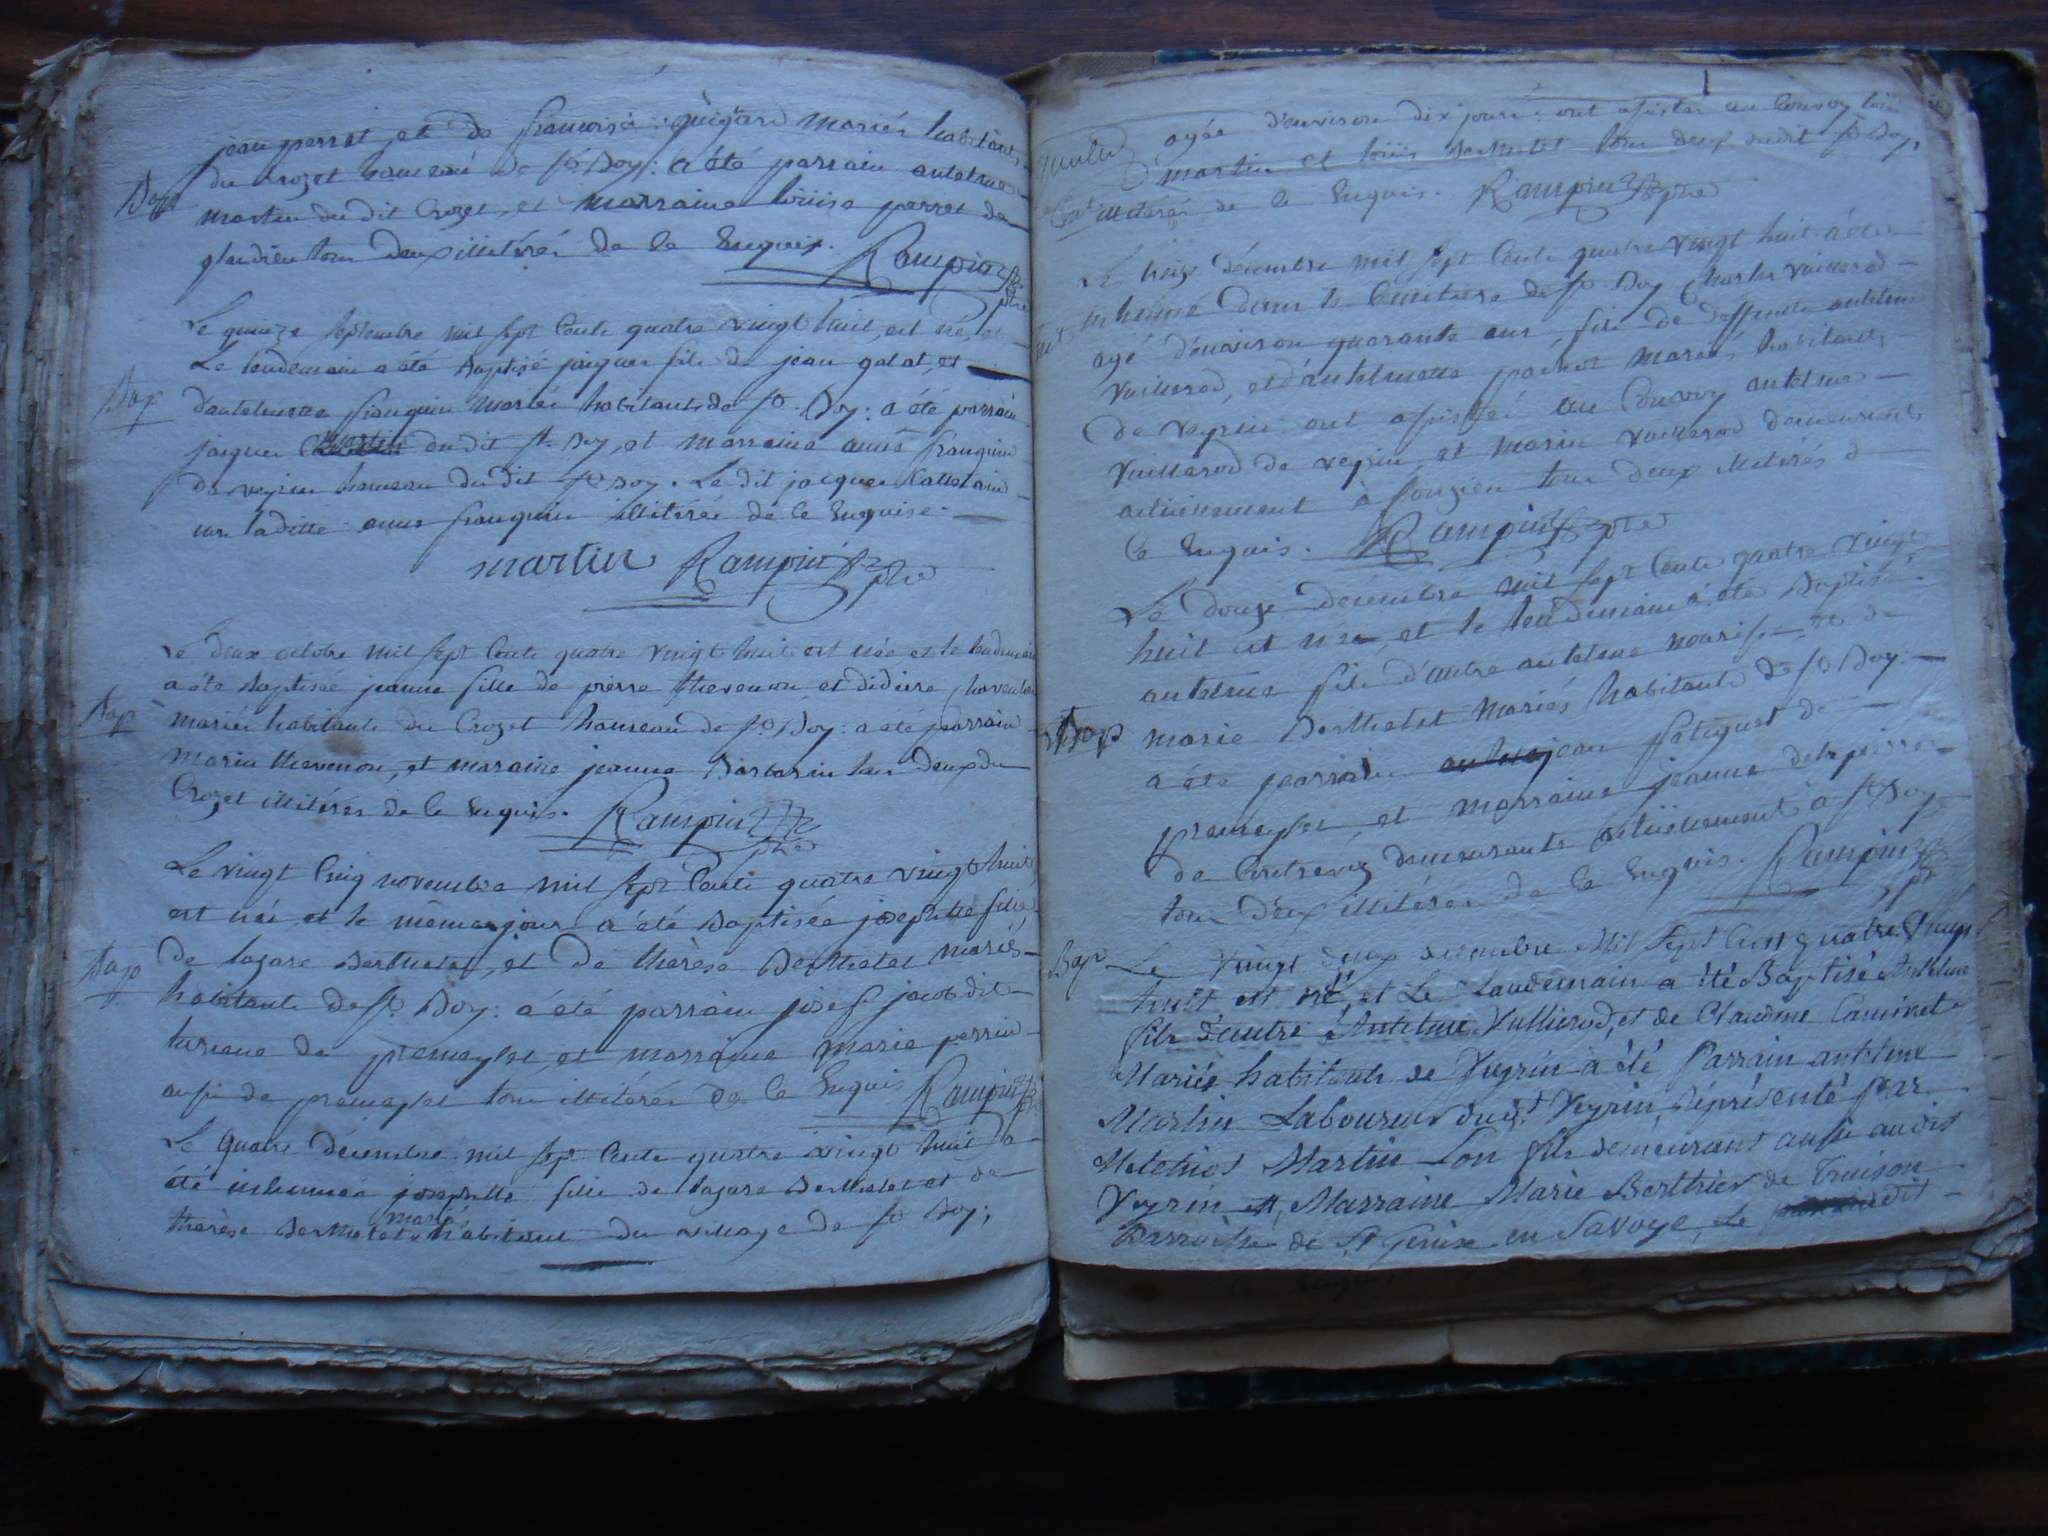 jean perret et de francoise guigard mariés habitants
Bap
du Crozet hameau de st Boy : a été parrain antelme
martin dudit Crozet, et marraine loüise perret de
tous deux illitérés de ce Enquis. Rampin ptre
Le quinze septembre mil sept Cents quatre vingt huit, est né, et
Le lendemain a été Baptisé jacques fils de jean galat, et
Bap
d'antelmette franquin mariés habitants de st. Boy : a été parrain
jacques martin dudit st Boy, et marraine anne franquin
de veyrin hameau dudit st Boy. Le dit jacques
laditte anne franquin illitérée de ce Enquise.
martin Rampin ptre
Le deux octobre mil sept Cents quatre vingt huit est née et le lendemain
a été Baptisée jeanne fille de pierre thevenon et didiere
Bap
mariés habitants du Crozet hameau de st Boy : a été parrain
marin thevenon, et maraine jeanne Barbarin tous deux du
Crozet illitérés de ce Enquis. Rampin ptre
Le vingt Cinq novembre mil sept Cents quatre vingt huit
est née et le même jour a été Baptisée josephtte fille
Bap
de lazare Berthelet, et de thérèse Berthelet mariés
habitants de st Boy : a été parrain josef jacob dit
de premeyset, et marraine marie perrin
aussi de premeyset tous illitérés de ce Enquis Rampin ptre
Le quatre décembre mil sept Cents quatre vingt huit a
été inhumée josephtte fille de lazare Berthelet et de
mariés
thérèse Berthelet habitants du village de st Boy,
agée d'environ dix jours : ont assistés au Convoy
martin et loüis Berthelet tous deux dudit st Boy,
illitérés de ce Enquis. Rampin ptre
Le décembre mil sept Cents quatre vingt huit a été
inhumé dans le Cimitiere de st Boy Charles vuillerod
agé d'environ quarante ans, fils de deffunts antelme
vuillerod, et d'antelmette mariés habitants
de veyrin : ont assistés au Convoy antelme
vuillerod de veyrin, et marin vuillerod demeurant
actüellement à tous deux illitérés de
ce Enquis. Rampin ptre
Le douze décembre mil sept Cents quatre vingt
huit est né, et le lendemain a été Baptisé
antelme fils d'autre antelme et de
Bap
marie Berthelet mariés habitants de st Boy :
a été parrain jean de
premeyset, et marraine jeanne delapierre
de Contrevoz demeurants actüellement à st Boy
tous deux illitérés de ce Enquis. Rampin ptre
Bap
Le vingt deux decembre Mil Sept Cent quatre Vingt
huit est né, et Le Landemain a été Baptisé Antelme
fils d'autre Antelme Vullierod, et de Claudine Caminet
Mariés habitants de Veyrin a été Parrain antelme
Martin Laboureur dudit Veyrin, réprésenté par
Melchiot Martin son fils demeurant aussi audit
Veyrin et, Marraine Marie Berthier de Truison
Parroisse de St Genix en Savoye, Le dit